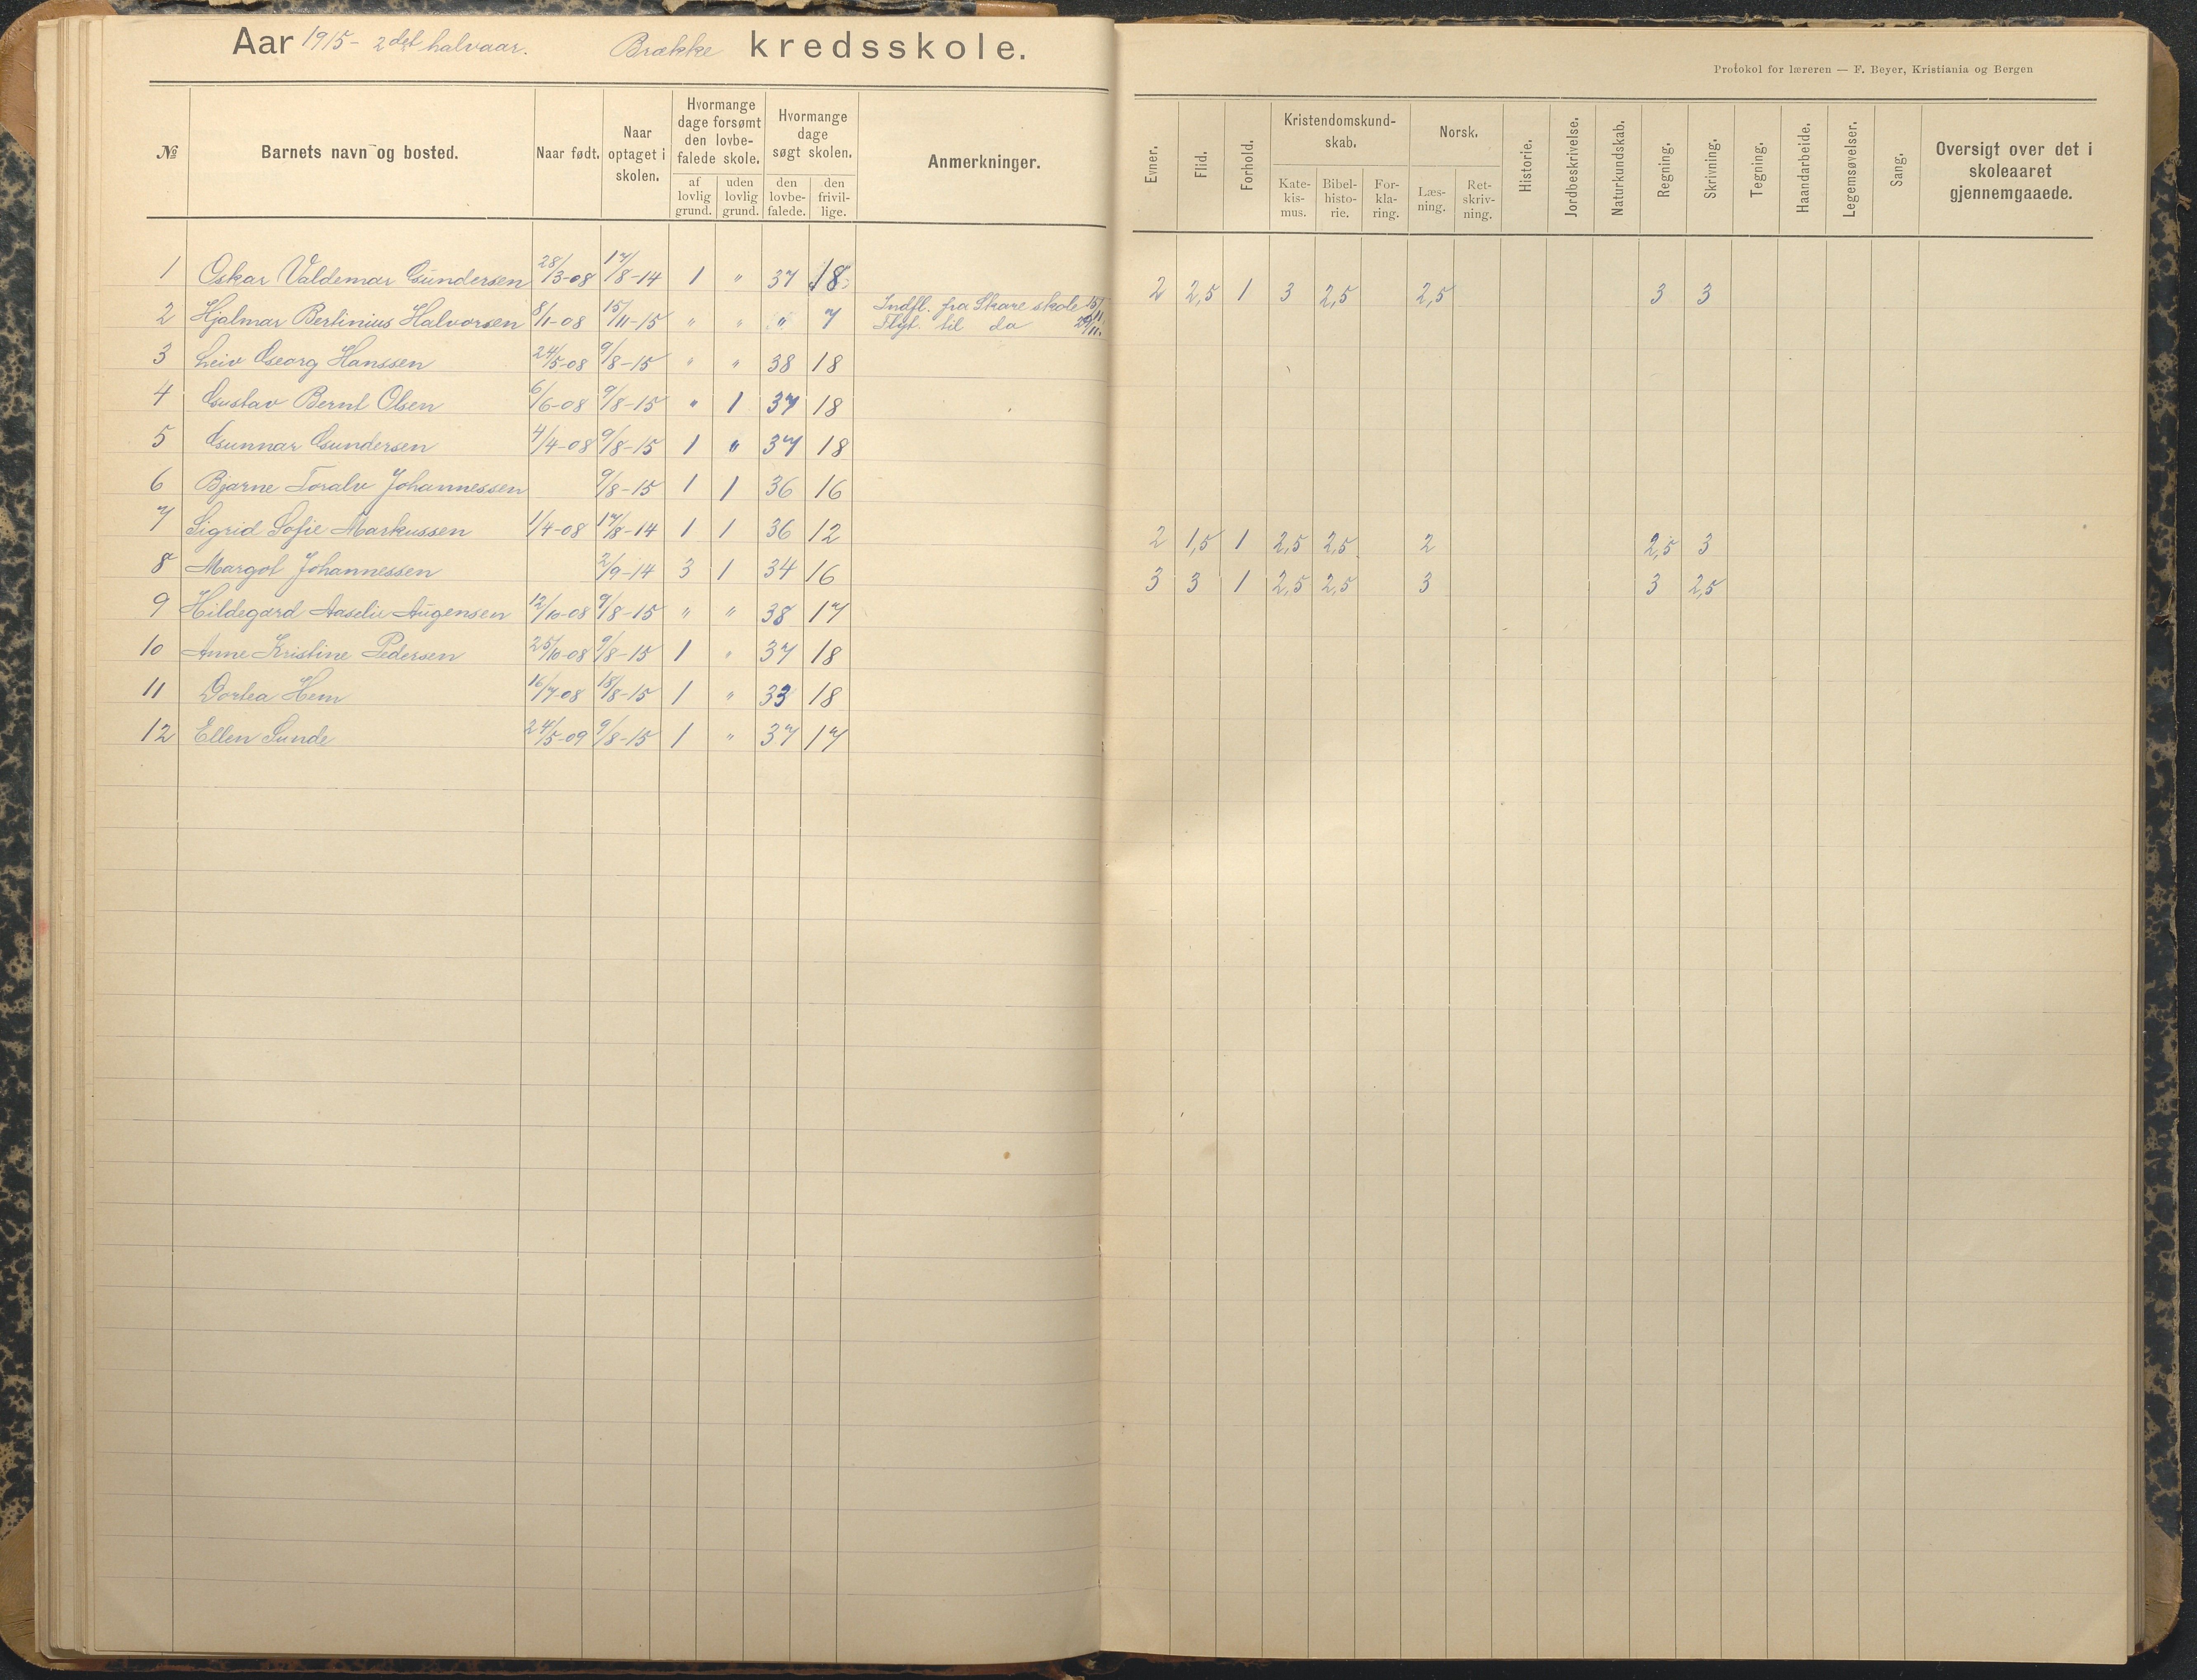 Aar 1915 - 2det halvaar. Brække kredsskole.
Protokol for læreren — F. Beyer, Kristiania og Bergen
№ Barnets navn og bosted. Naar født. Naar optaget i skolen. Hvormange dage forsømt den lovbefalede skole. af lovlig grund. uden lovlig grund. Hvormange dage søgt skolen. den lovbefalede. den frivillige. Anmerkninger. Evner. Flid. Forhold. Kristendomskundskab. Katekismus. Bibelhistorie. Forklaring. Norsk. Læsning. Retskrivning. Historie. Jordbeskrivelse. Naturkundskab. Regning. Skrivning. Tegning. Haandarbeide. Legemsøvelser. Sang. Oversigt over det i skoleaaret gjennemgaaede.
1 Oskar Valdemar Gundersen 28/3-08 17/8-14 1 " 37 18 2 2,5 1 3 2,5 2,5 3 3
2 Hjalmar Bertinius Halvorsen 8/11-08 15/11-15 " " " 7 Indfl. fra Skare skole 15/11.
Flyt. til do 29/11.
3 Leiv Georg Hanssen 24/5-08 9/8-15 " " 38 18
4 Gustav Bernt Olsen 6/6-08 9/8-15 " 1 37 18
5 Gunnar Gundersen 4/4-08 9/8-15 1 " 37 18
6 Bjarne Toralv Johannessen 9/8-15 1 1 36 16
7 Sigrid Sofie Markussen 1/4-08 17/8-14 1 1 36 12 2 1,5 1 2,5 2,5 2 2,5 3
8 Margot Johannessen 2/9-14 3 1 34 16 3 3 1 2,5 2,5 3 3 2,5
9 Hildegard Aaselie Augensen 12/10-08 9/8-15 " " 38 17
10 Anne Kristine Pedersen 25/10-08 9/8-15 1 " 37 18
11 Dortea Hem 16/7-08 18/8-15 1 " 33 18
12 Ellen Sunde 24/5-09 9/8-15 1 " 37 17